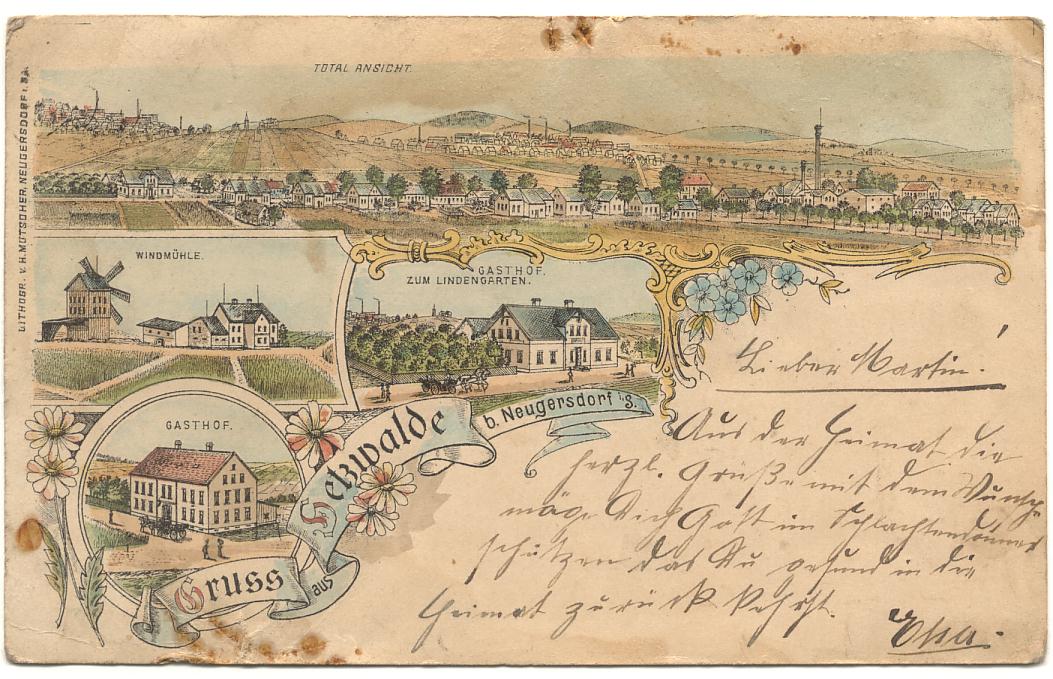 TOTAL ANSICHT.
LITHOGR. v. H. MUTSCHER, NEUGERSDORF i. SA.
WINDMÜHLE.
GASTHOF.
ZUM LINDENGARTEN.
GASTHOF.
Gruss
aus
Hetzwalde
b. Neugersdorf i. S.
Lieber Martin!
Aus der Heimat die
herzl. Grüße mit dem Wunsche
möge Dich Gott im Schlachtendonner
schützen das Du gesund in die
Heimat zurück kehrst.